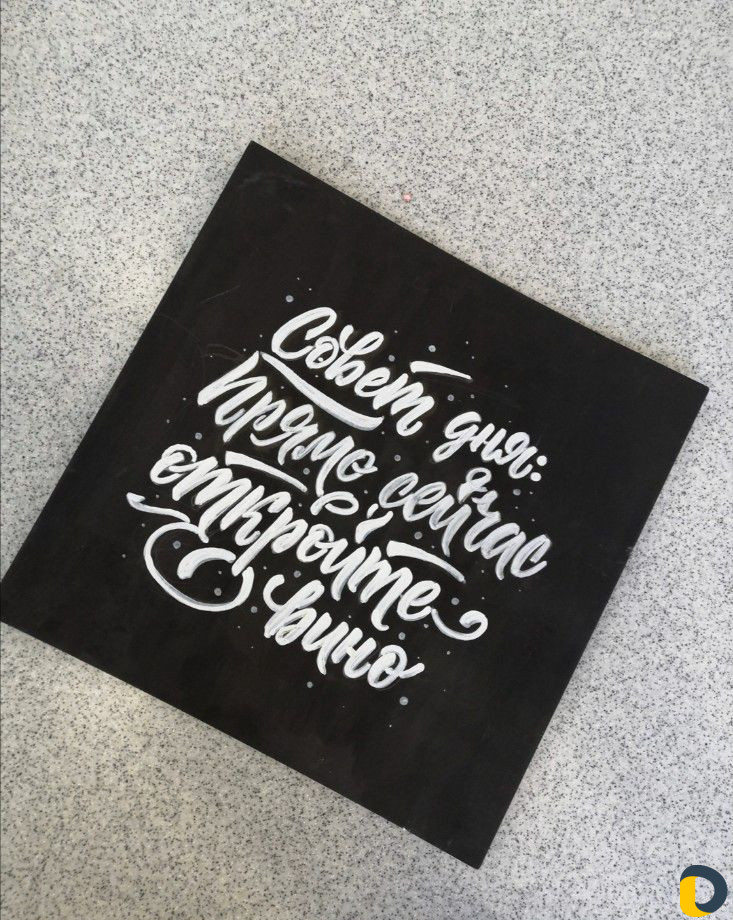 Совет дня:
прямо сейчас
откройте
вино